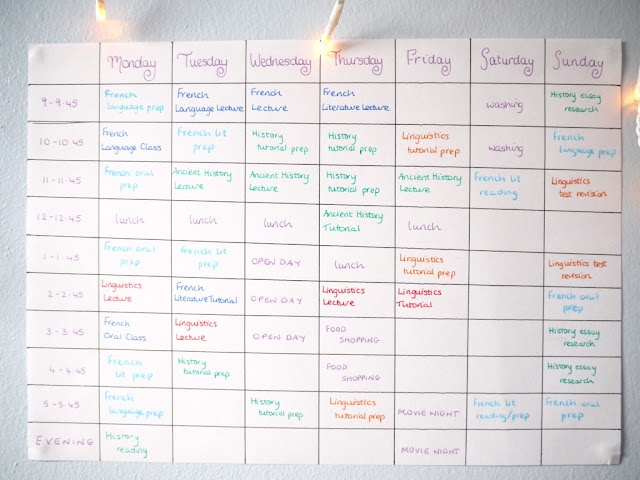 Monday
Tuesday
Wednesday
Thursday
Friday
Saturday
Sunday
9-9.45
French
language prep
French
Language Lecture
French
Lecture
French
Literature Lecture
washing
History essay
research
10-10.45
French
Language Class
French lit
prep
History
tutorial prep
History
tutorial prep
Linguistics
tutorial prep
washing
French
language prep
11-11.45
French oral
prep
Ancient History
Lecture
Ancient History
Lecture
History
tutorial prep
Ancient History
Lecture
French lit
reading
Linguistics
test revision
12-12.45
lunch
lunch
lunch
Ancient History
Tutorial
lunch
1-1.45
French oral
prep
French lit
prep
OPEN DAY
lunch
Linguistics
tutorial prep
Linguistics test
revision
2-2.45
Linguistics
Lecture
French
Literature Tutorial
OPEN DAY
Linguistics
Lecture
Linguistics
Tutorial
French oral
prep
3-3.45
French
Oral Class
Linguistics
Lecture
OPEN DAY
FOOD
SHOPPING
History essay
research
4-4.45
French
lit prep
History
tutorial prep
FOOD
SHOPPING
History essay
research
5-5.45
French
language prep
History
tutorial prep
Linguistics
tutorial prep
MOVIE NIGHT
French lit
reading/prep
French oral
prep
EVENING
History
reading
MOVIE NIGHT